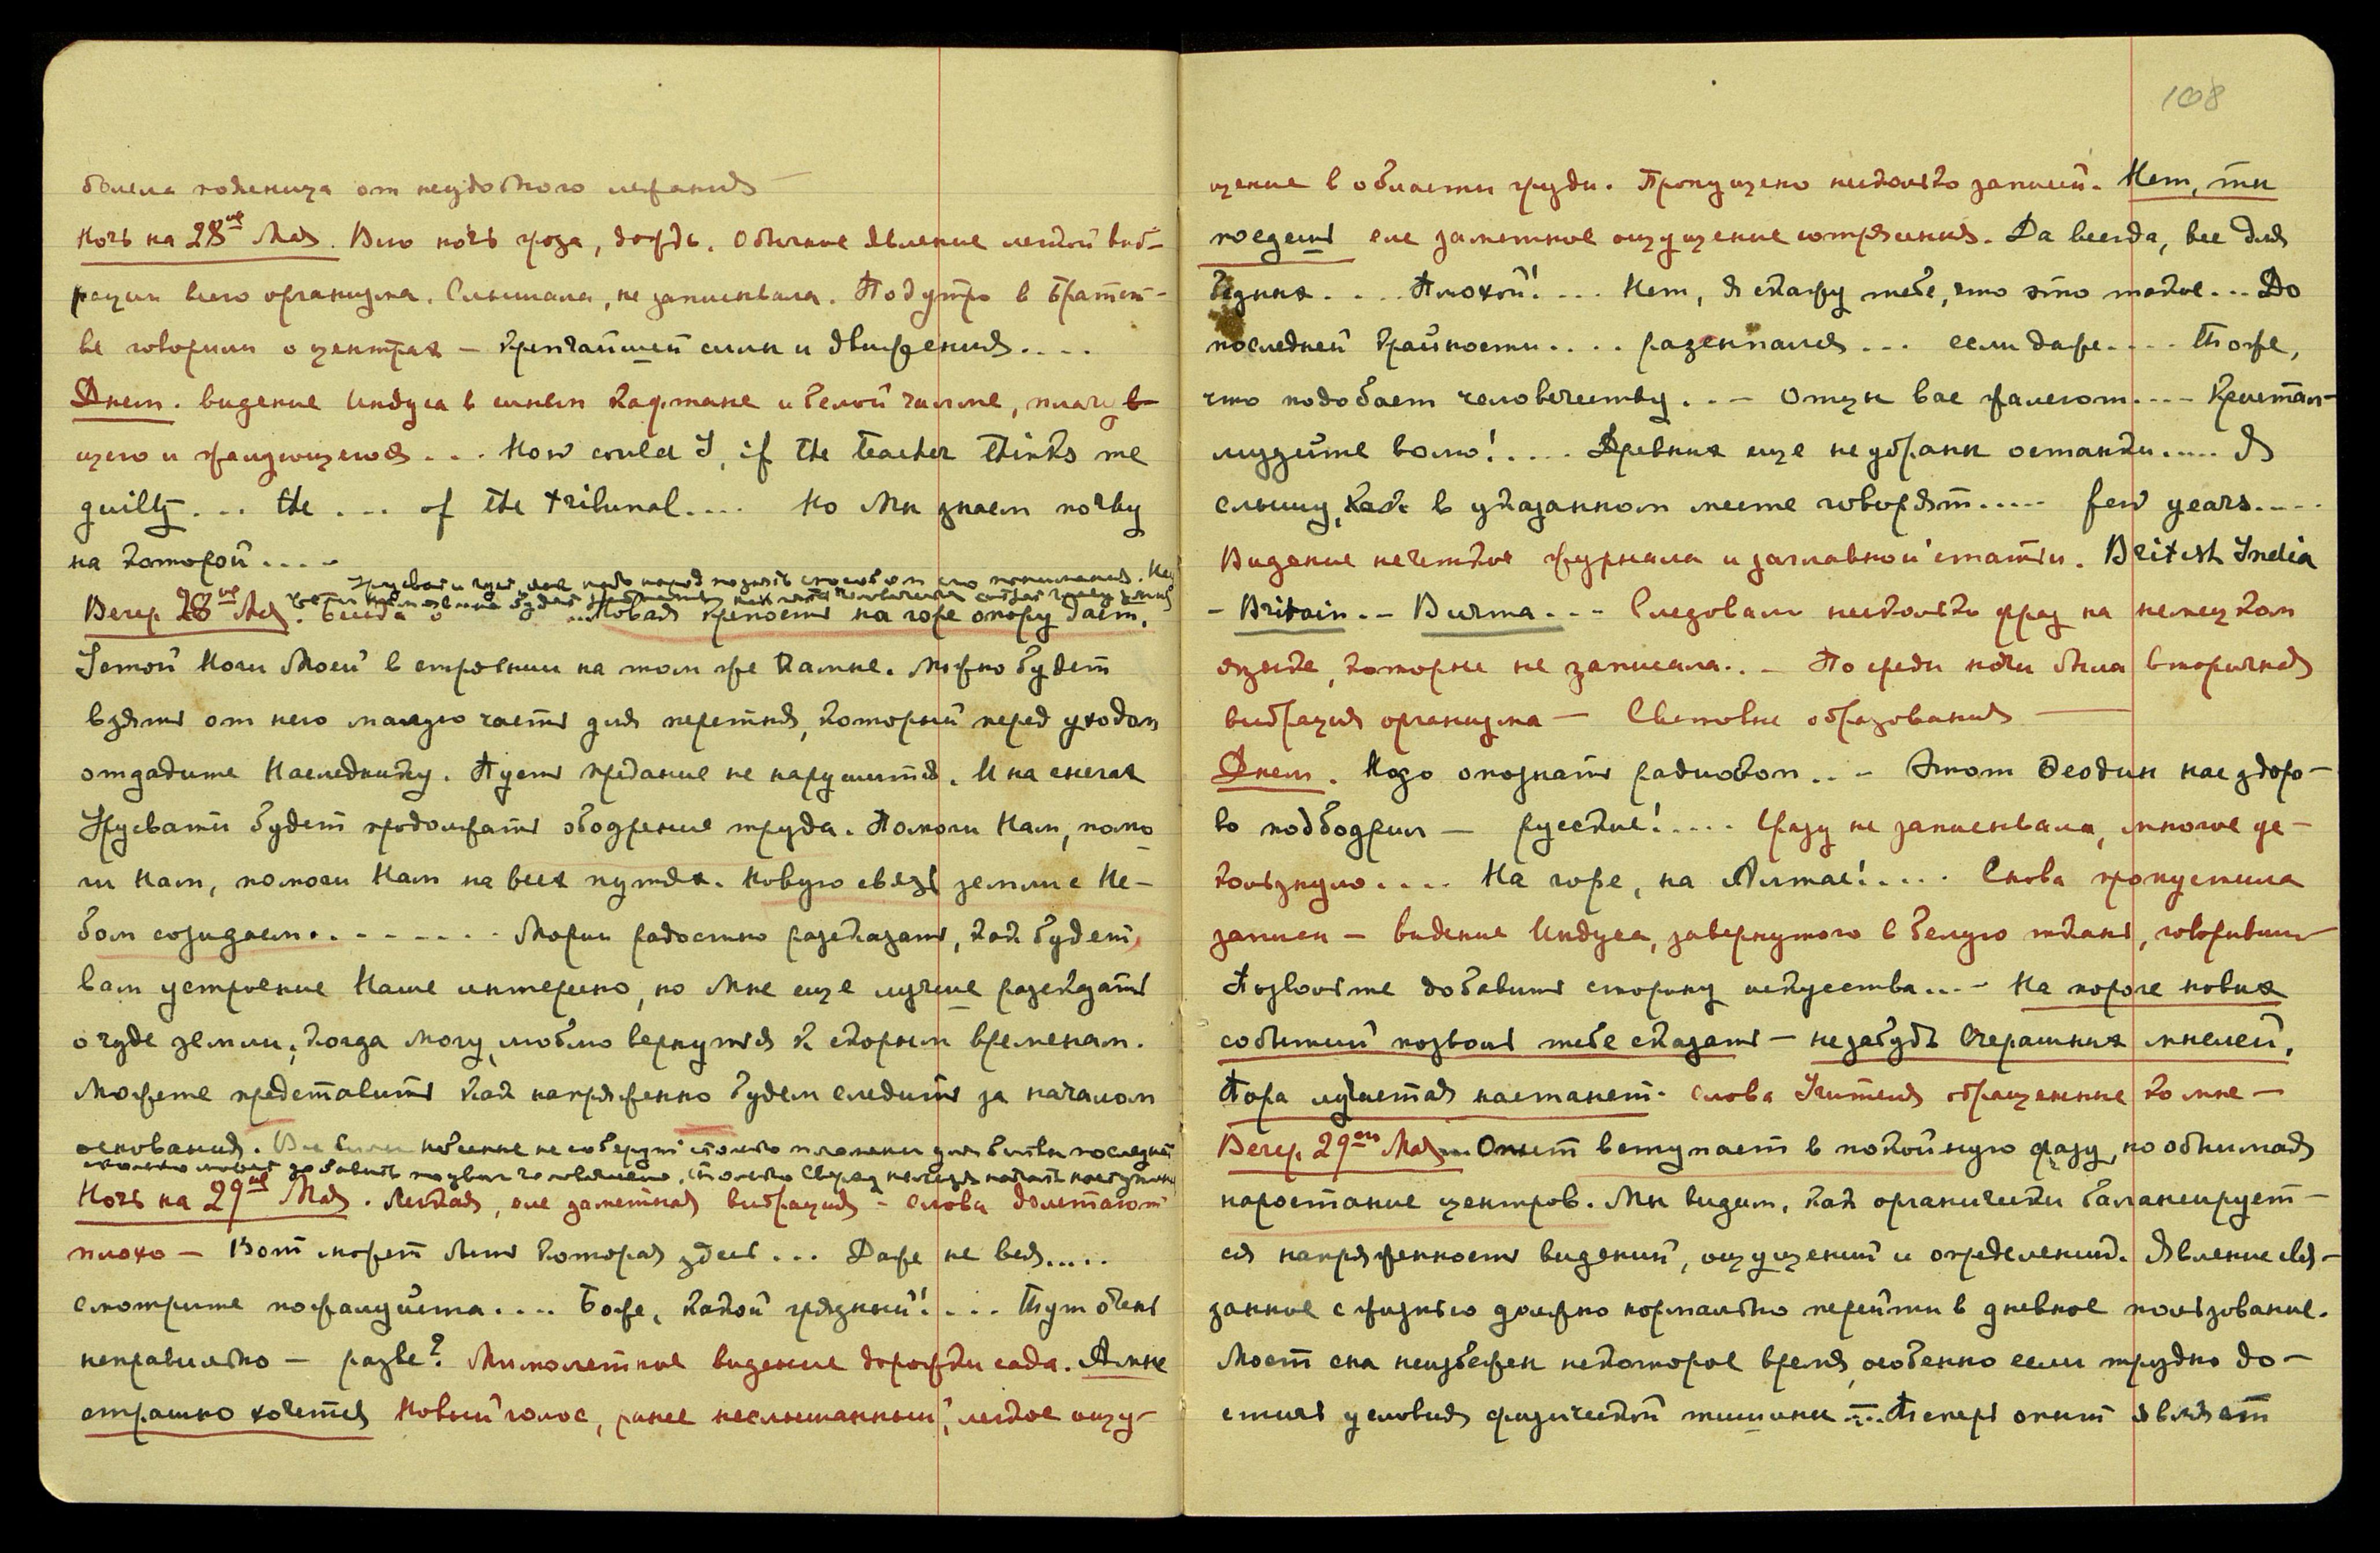 болела поясница от неудобного лежания —
Ночь на 28ое Мая. Всю ночь гроза, дождь. Обычное явление легкой виб-
рации всего организма. Слышала, не записывала. Под утро в Братст-
ве говорили о центрах — крепчайшей силы и движения....
Днем. Видение Индуса в синем кафтане и белой чалме, плачу-
щего и жалующегося... How could I, if the teacher thinks me
guilty... the ... of the tribunal.... Но Мы знаем почву
на которой.....
Вечер 28ое Мая. Беседа о ... Новая крепость на горе опору дает.
Устой Ноги Моей в строении на том же камне. Можно будет
взять от него малую часть для перстня, который перед уходом
отдадите Наследнику. Пусть предание не нарушится. И на снегах
Урусвати будет продолжать ободрение труда. Помоги Нам, помо-
ги Нам, помоги Нам на всех путях. Новую связь земли с Не-
бом созидаем......... Мории радостно рассказать, как будет
вам устроение Наше интересно, но Мне еще лучше рассказать
о чуде земли; когда могу, люблю вернуться к скорым временам.
Можете представить как напряженно будем следить за началом
основания. Все битвы небесные не соберут столько пламени для битвы последней
Ночь на 29ое Мая. Легкая, еле заметная вибрация — слова долетают
плохо — Вот может быть которая здесь... Даже не вся.....
смотрите пожалуйста.... Боже, какой грязный!... Тут очень
неправильно — разве? Мимолетное видение дорожки сада. А мне
страшно хочется Новый голос, ранее неслышанный, легкое ощу-
108
щение в области груди. Пропущено несколько записей. Нет, ты
поедешь еле заметное ощущение сотрясения. Да всегда, все для
бедных.... Плохой!... Нет, я скажу тебе, что это такое... До
последней крайности.... рассыпался... если даже.... Тоже,
что подобает человечеству... — Отцы вас жалеют... — Кристал-
лизуйте волю!.... Древних еще не убраны останки..... Я
слышу, как в указанном месте говорят..... few years.....
Видение нечеткое журнала и заглавной статьи. British India
- Britain.. - Burma... - Следовали несколько фраз на немецком
языке, которые не записала.. — Посреди ночи была вторичная
вибрация организма — Световые образования —
Днем. Надо опознать радиоволн.. - Этот Феодин нас здоро-
во подбодрил — русские!.... Сразу не записывала, многое ус-
кользнуло.... На горе, на Алтае!.... Снова пропустила
записи — видение Индуса, завернутого в белую ткань, говоривш.
Позвольте добавить сторону искусства... - На пороге новых
событий позволь тебе сказать — незабудь вчерашних мыслей.
Пора лучистая настанет. слова Учителя обращенные ко мне —
Вечер 29ое Мая... Опыт вступает в покойную фазу, но обнимая
наростание центров. Мы видим, как органически балансирует-
ся напряженность видений, ощущений и определений. Явление свя-
занное с жизнью должно нормально перейти в дневное пользование.
Мост сна неизбежен некоторое время, особенно если трудно до-
стичь условия физической тишины... Теперь опыт являет